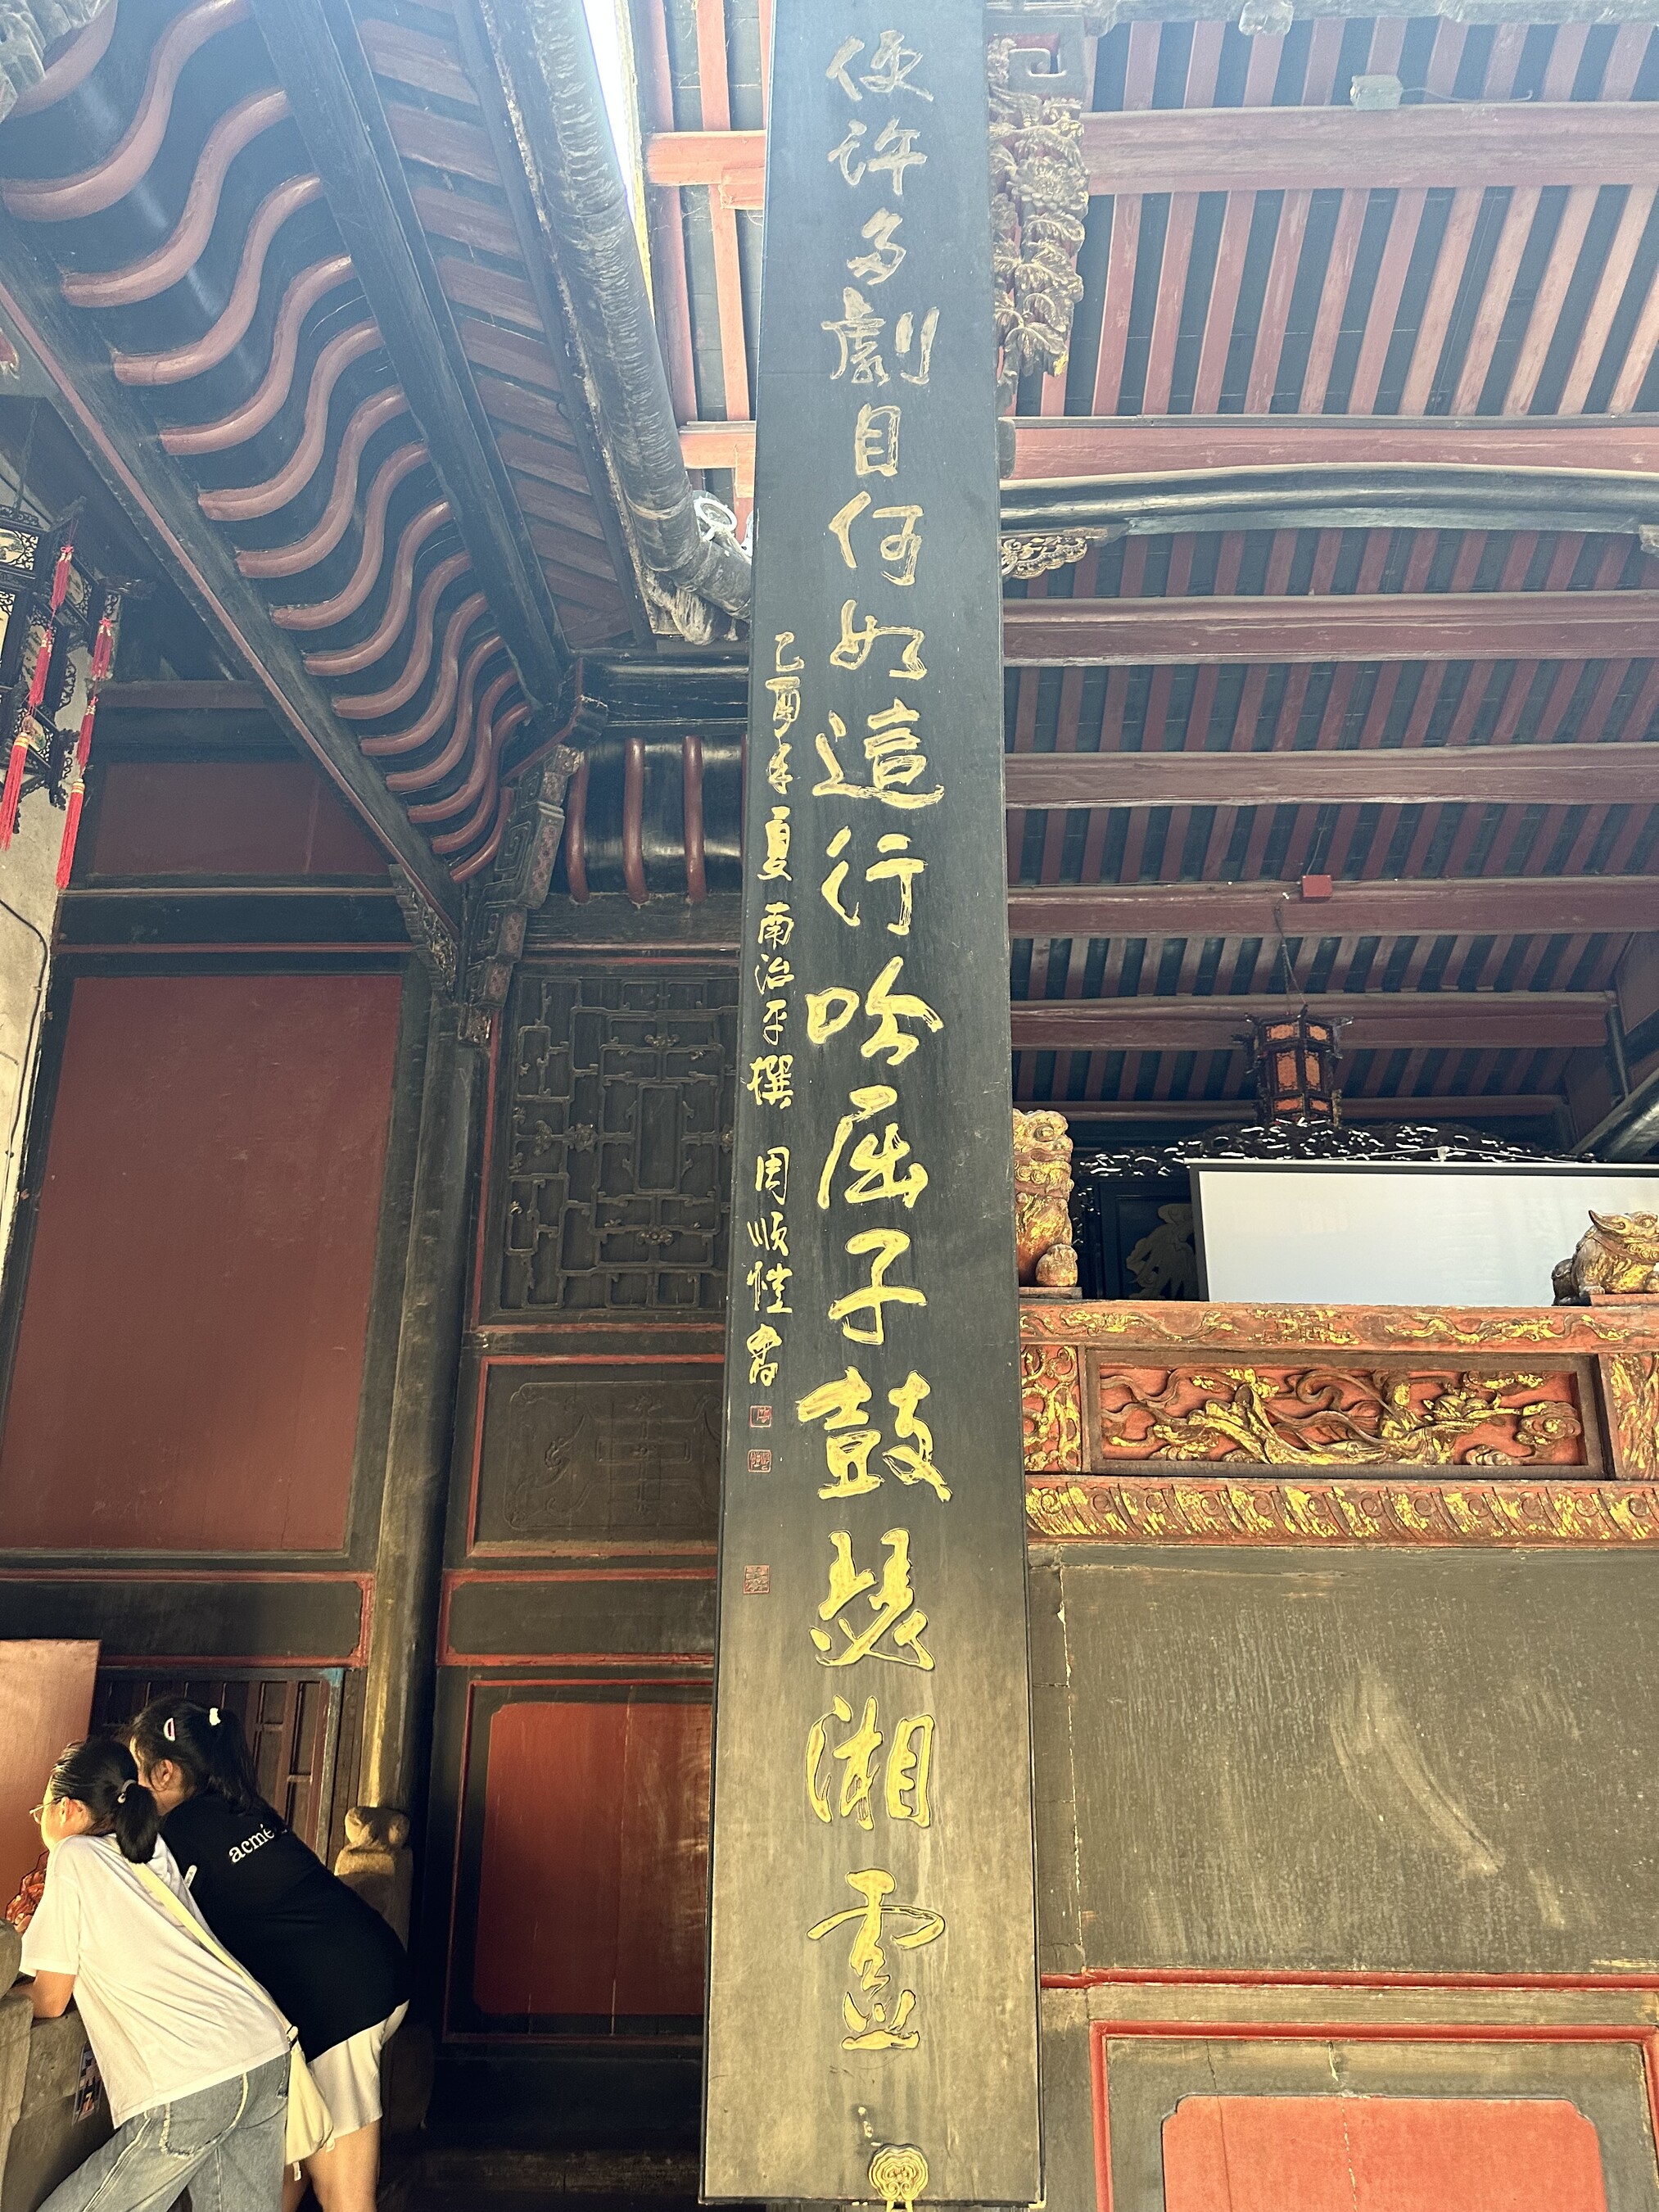 便許多劇目何如這行吟屈子鼓瑟湘靈
乙酉年夏 南治平撰 周順愷書
acmé